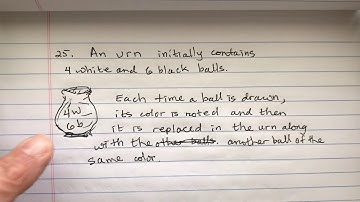 25. An urn initially contains
4 white and 6 black balls.
Each time a ball is drawn,
4w
its color is noted and then
6b
it is replaced in the urn along
with the other balls. another ball of the
same color.